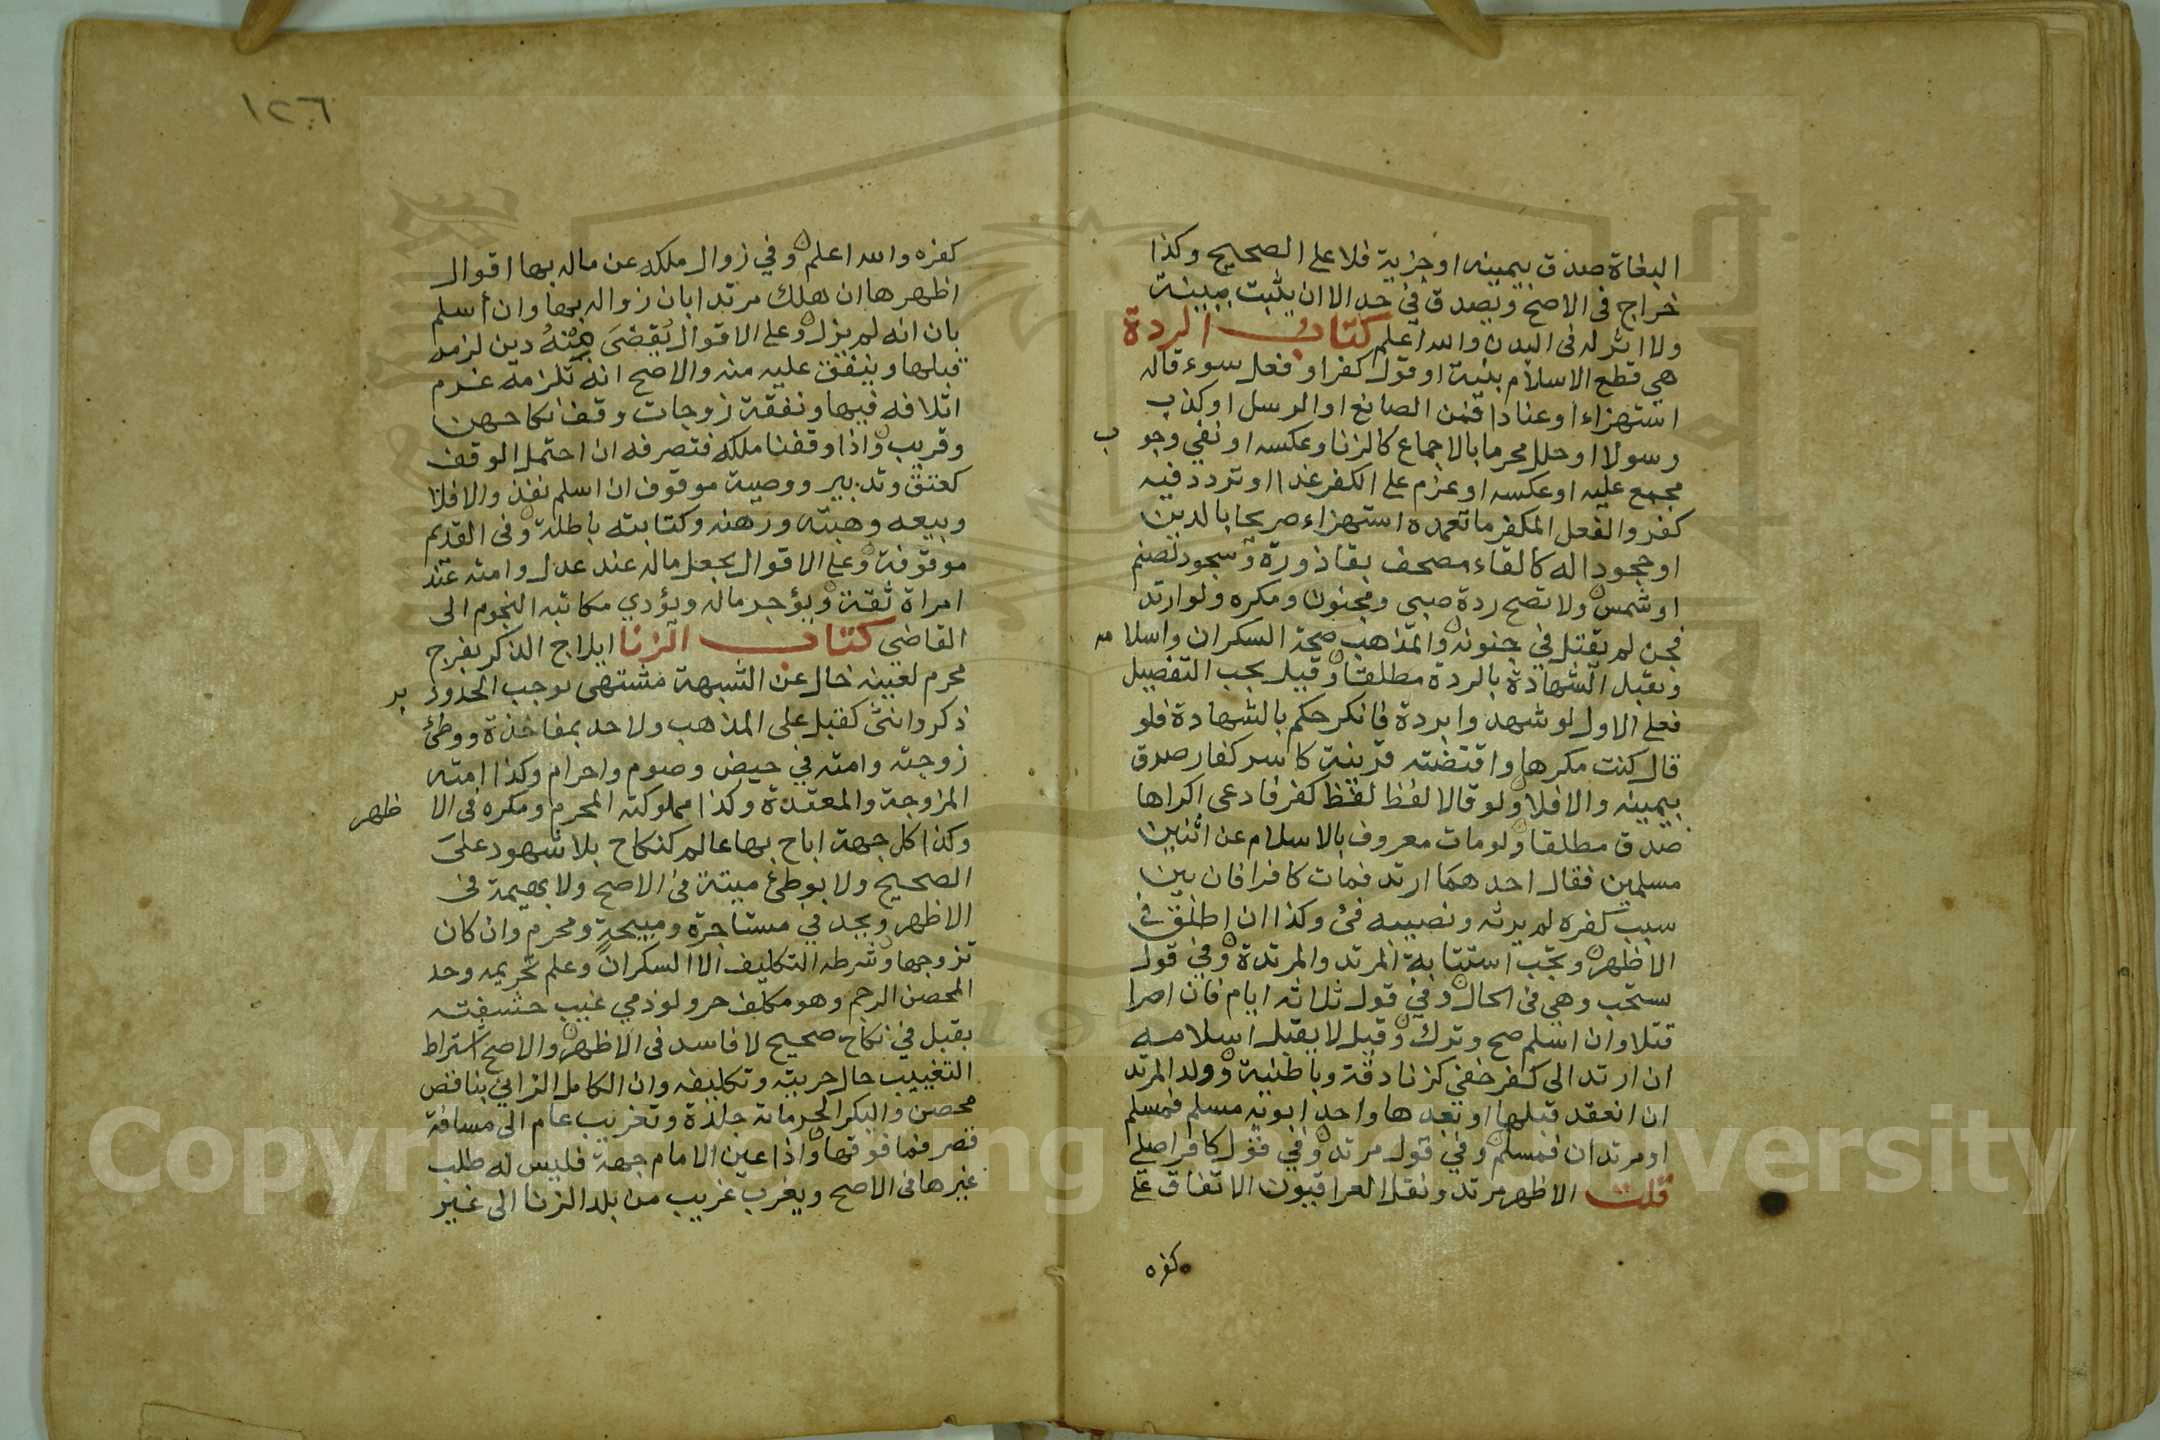 البغاة صدق بيمينه اوجزية فلا على الصحيح وكذا
خراج فى الاصح ويصدق في حد الا ان يثبت ببينة
ولا اثر له فى البدن والله اعلم كتاب الردة
هي قطع الاسلام بنية او قول كفر او فعل سوء قاله
استهزاء او عنادا فمن الصانع او الرسل او كذب
رسولا او حلل محرما بالاجماع كالزنا وعكسه او نفي وجوب
مجمع عليه او عكسه او عزم على الكفر غدا او تردد فيه
كفر والفعل المكفر ما تعمده استهزاء صريحا بالدين
او جحودا له كالقاء مصحف بقاذورة وسجود لصنم
او شمس ولا تصح ردة صبي ومجنون ومكره ولو ارتد
فجن لم يقتل في جنونه والمذاهب صحة السكران واسلامه
وتقبل الشهادة بالردة مطلقا وقيل يجب التفصيل
فعلى الاول لو شهدوا بردة فانكر حكم بالشهادة فلو
قال كنت مكرها واقتضته قرينة كاسر كفار صدق
بيمينه والا فلا ولو قالا لفظ لفظ كفر فادعى اكراها
صدق مطلقا ولو مات معروف بالاسلام عن اثنين
مسلمين فقال احدهما ارتد فمات كافرا فان بين
سبب كفره لم يرثه ونصيبه فئ وكذا ان اطلق في
الاظهر وتجب استتابة المرتد والمرتدة وفي قول
ستحب وهي فى الحال وفي قول ثلاثه ايام فان اصرا
قتلا وان اسلم صح وترك وقيل لا يقبل اسلامه
ان ارتد الى كفر خفي كزنادقة وباطنية وولد المرتد
ان انعقد قبلها او بعدها واحد ابويه مسلم فمسلم
او مرتدان فمسلم وفي قول مرتد وفي قول كافر اصلي
قلت الاظهر مرتد ونقل العراقيون الاتفاق على
كفره
١٢٦
كفره والله اعلم وفي زوال ملكه عن ماله بها اقوال
اظهرها ان هلك مرتدا بان زواله بها وان أسلم
بان انه لم يزل وعلى الاقوال يُقضَى مِنْهُ دين لزمه
قبلها وينفق عليه منه والاصح انه تلزمه غرم
اتلافه فيها ونفقة زوجات وقف نكاحهن
وقريب واذا وقفنا ملكه فتصرفه ان احتمل الوقف
كعتق وتدبير ووصية موقوف ان اسلم نفذ والا فلا
وبيعه وهبته ورهنه وكتابته باطلة وفى القديم
موقوفة وعلى الاقوال يجعل ماله عند عدل وامته عند
امراة ثقة ويؤجر ماله ويؤدي مكاتبه النجوم الى
القاضي كتاب الزنا ايلاج الذكر بفرج
محرم لعينه خال عن الشبهة مشتهى يوجب الحدود بر
ذكر وانثى كقبل على المذهب ولا حد بمفاخذة ووطئ
زوجته وامته في حيض وصوم واحرام وكذا امته
المزوجة والمعتدة وكذا مملوكته المحرم ومكره فى الا ظهر
وكذا كل جهة اباح بها عالم كنكاح بلا شهود على
الصحيح ولا بوطئ ميتة فى الاصح ولا بهيمة فى
الاظهر ويحد في مستاجرة ومبيحة ومحرم وان كان
تزوجها وشرطه التكليف الا السكران وعلم تحريمه وحد
المحصن الرجم وهو مكلف حر ولو ذمي غيب حشفته
بقبل في نكاح صحيح لا فاسد فى الاظهر والاصح اشتراط
التغييب حال حريته وتكليفه وان الكامل الزاني بناقص
محصن والبكر الحر ماية جلدة وتغريب عام الى مسافة
قصر فما فوقها واذا عين الامام جهة فليس له طلب
غيرها فى الاصح ويغرب غريب من بلد الزنا الى غير
Copyright © King Saud University